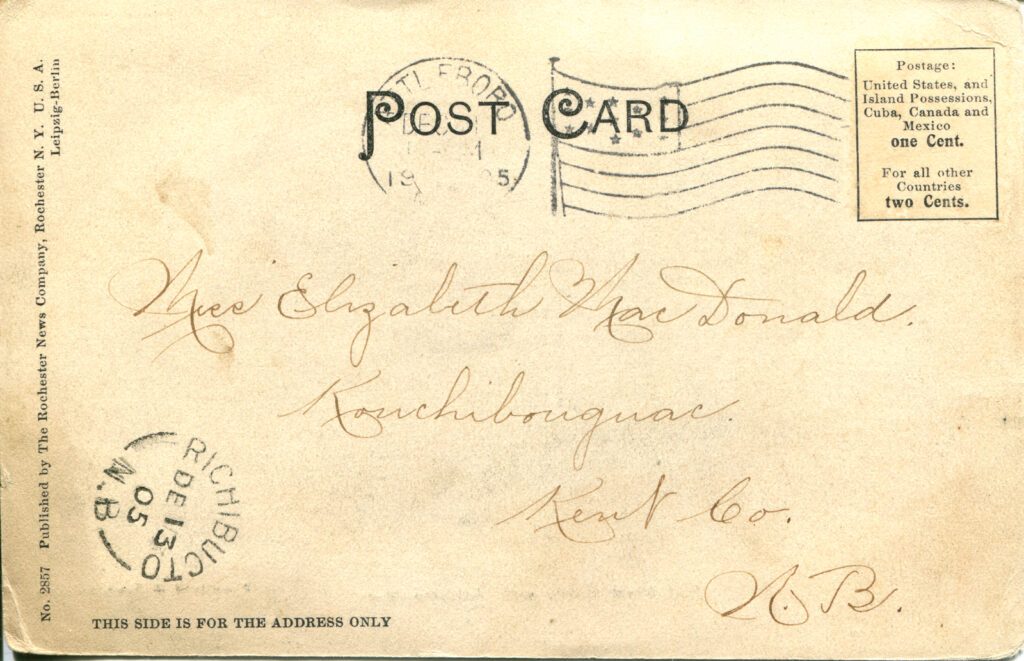 POST CARD
TLEBORO
DEC
19 05
Postage:
United States, and
Island Possessions,
Cuba, Canada and
Mexico
one Cent.
For all other
Countries
two Cents.
Miss Elizabeth MacDonald.
Kouchibouguac.
Kent Co.
N. B.
RICHIBUCTO
DE 13
05
N.B
THIS SIDE IS FOR THE ADDRESS ONLY
No. 2857 Published by The Rochester News Company, Rochester N. Y. U. S. A.
Leipzig-Berlin